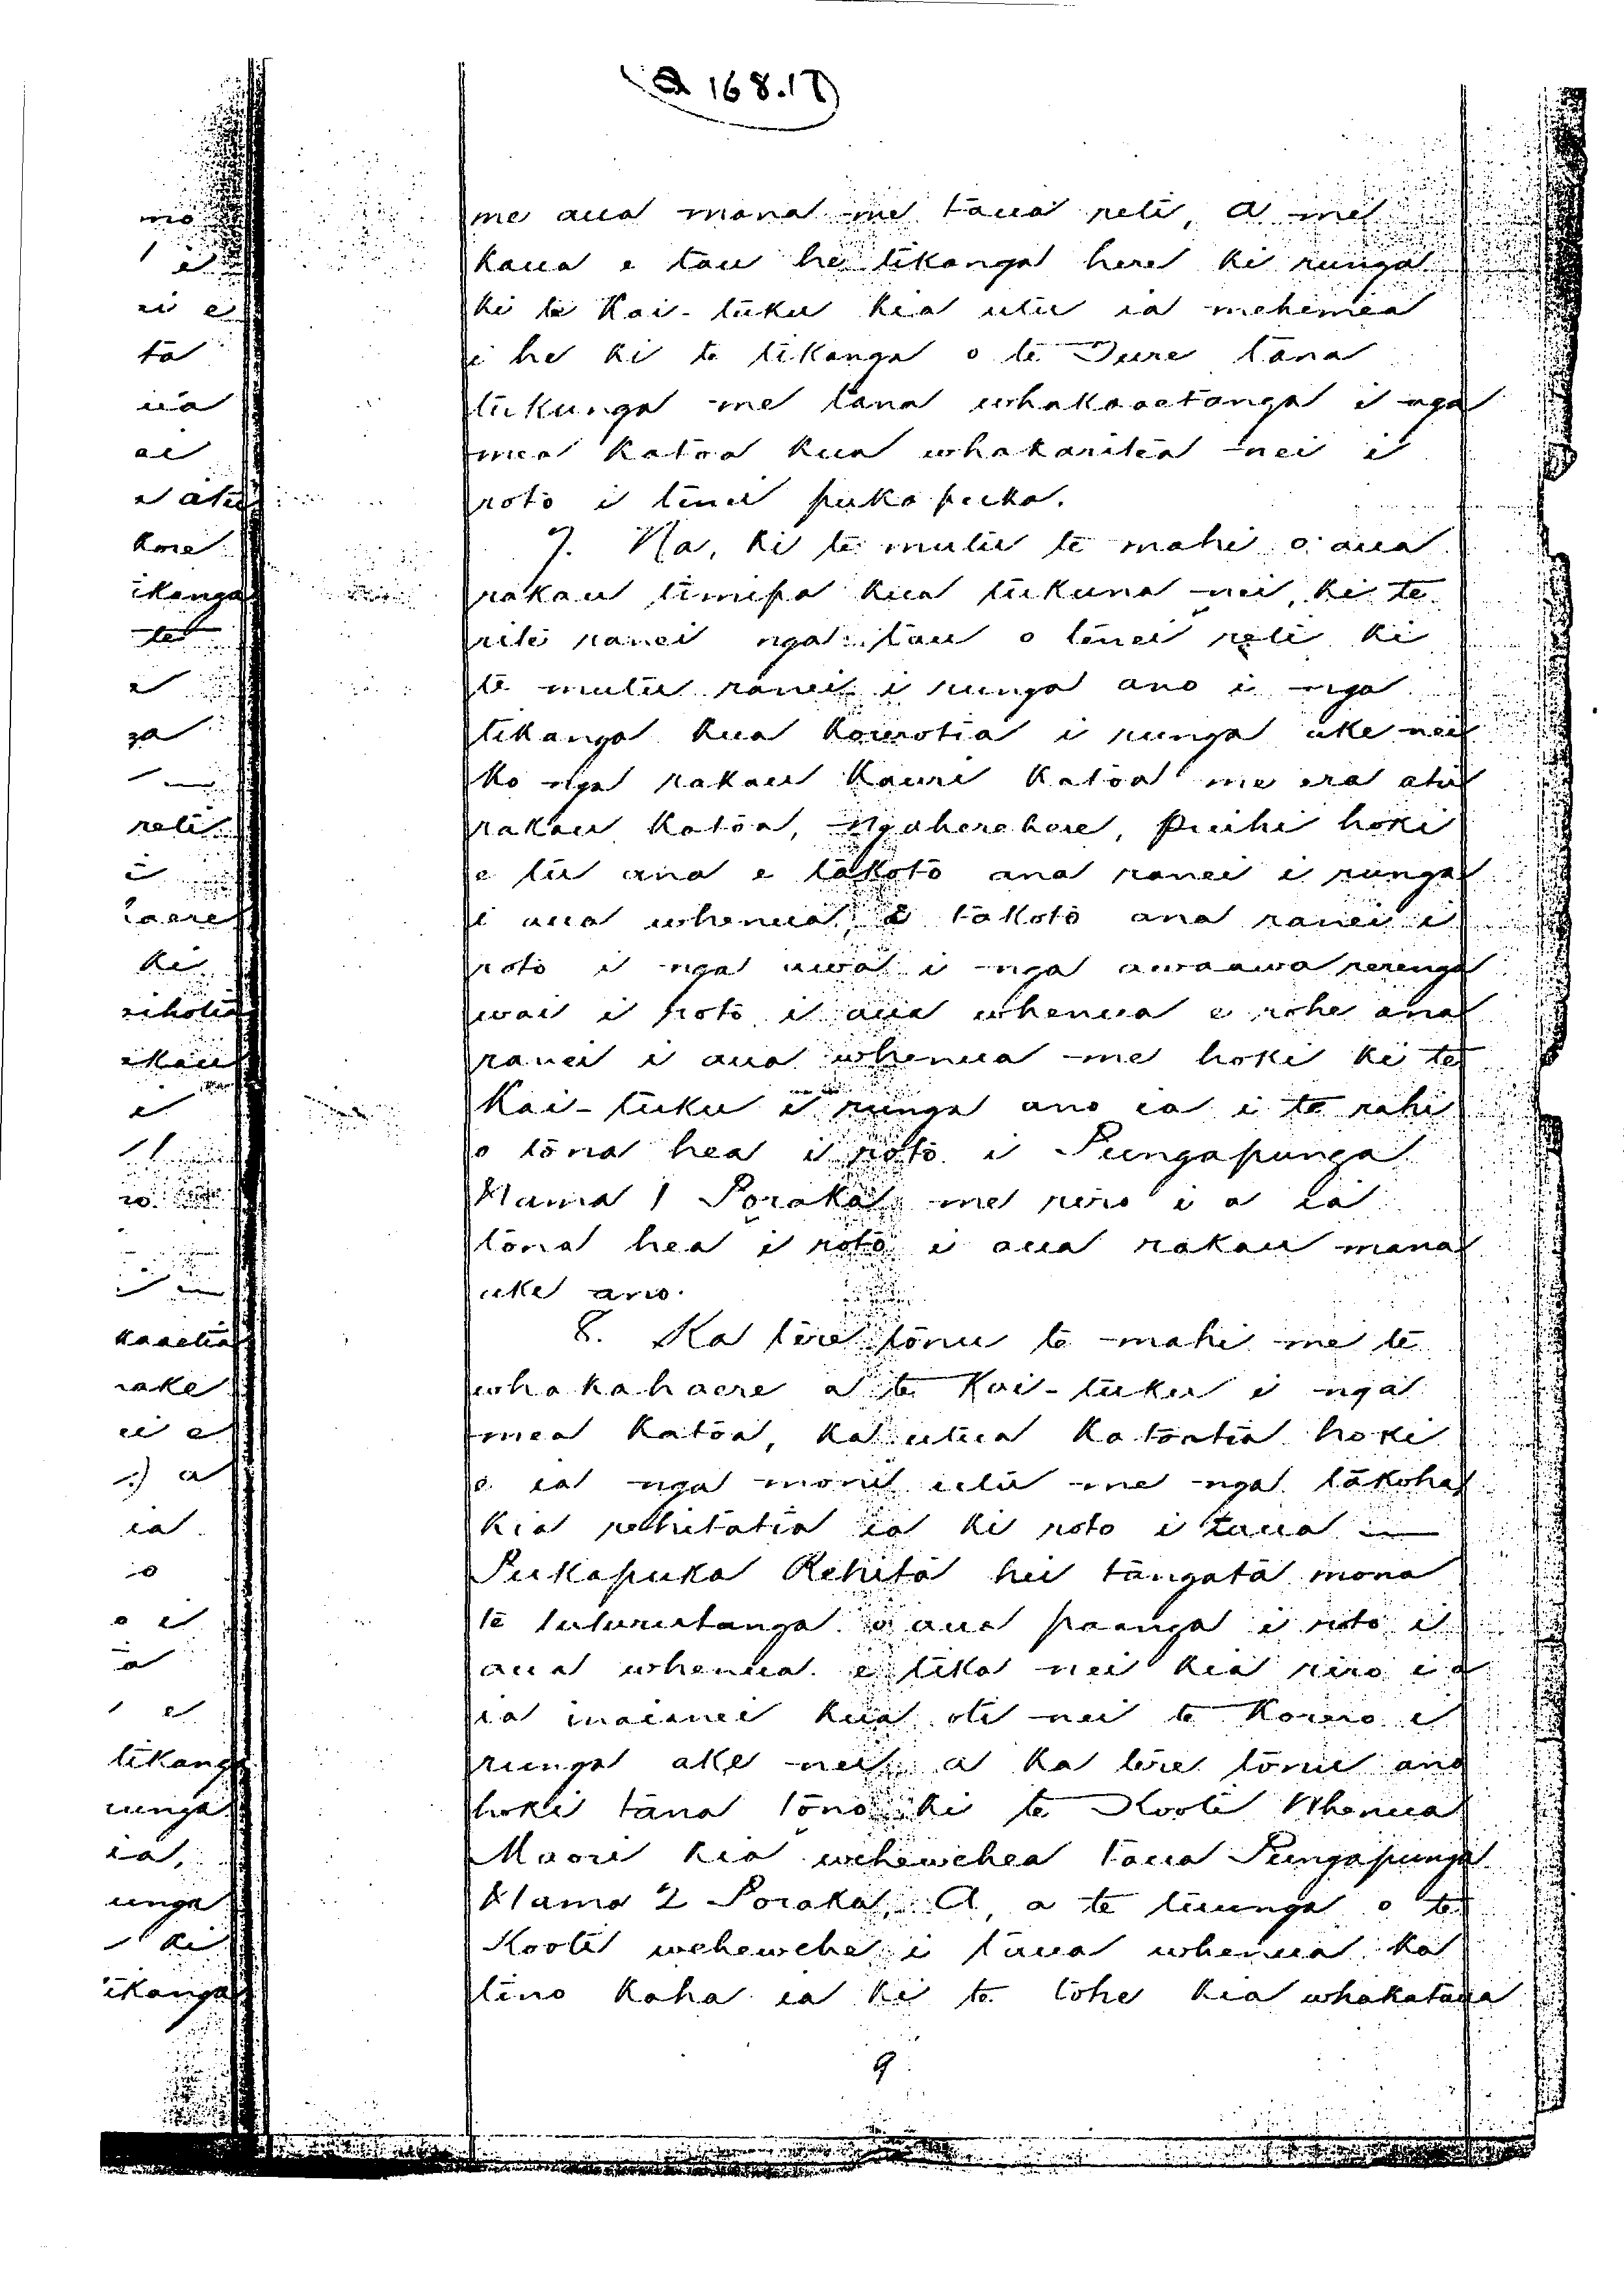 Q 168.17
me aua mana me taua reti, a me
kaua e tau he tikanga here ki runga
ki te Kai-tuku kia utu ia mehemea
i he ki te tikanga o te Ture tana
tukunga me tana whakaaetanga i nga
mea katoa kua whakaritea nei i
roto i tenei pukapuka.
7. Na, ki te mutu te mahi o aua
rakau timipa kua tukuna nei, ki te
rite ranei nga tau o tenei reti ki
te mutu ranei i runga ano i nga
tikanga kua korerotia i runga ake nei
ko nga rakau Kauri katoa me era atu
rakau katoa, ngaherehere, puihi hoki
e tu ana e takoto ana ranei i runga
i aua whenua, e takoto ana ranei i
roto i nga awa i nga awaawa rerenga
wai i roto i aua whenua e rohe ana
ranei i aua whenua me hoki ki te
Kai-tuku i runga ano ia i te rahi
o tona hea i roto i Pungapunga
Nama 1 Poraka me riro i a ia
tona hea i roto i aua rakau mana
ake ano.
8. Ka tere tonu te mahi me te
whakahaere a te Kai-tuku i nga
mea katoa, ka utua katoatia hoki
e ia nga moni utu me nga takoha
kia rehitatia ia ki roto i taua —
Pukapuka Rehita hei tangata mona
te tuturutanga o aua paanga i roto i
aua whenua e tika nei kia riro i a
ia inaianei kua oti nei te korero i
runga ake nei a ka tere tonu ano
hoki tana tono ki te Kooti Whenua
Maori kia wehewehea taua Pungapunga
Nama 2 Poraka, A, a te tuunga o te
Kooti wehewehe i taua whenua ka
tino kaha ia ki te tohe kia whakataua
9
mo
ta
ua
ai
ikanga
te
reti
haere
ki
tikanga
unga
ia,
unga
ki
ikanga